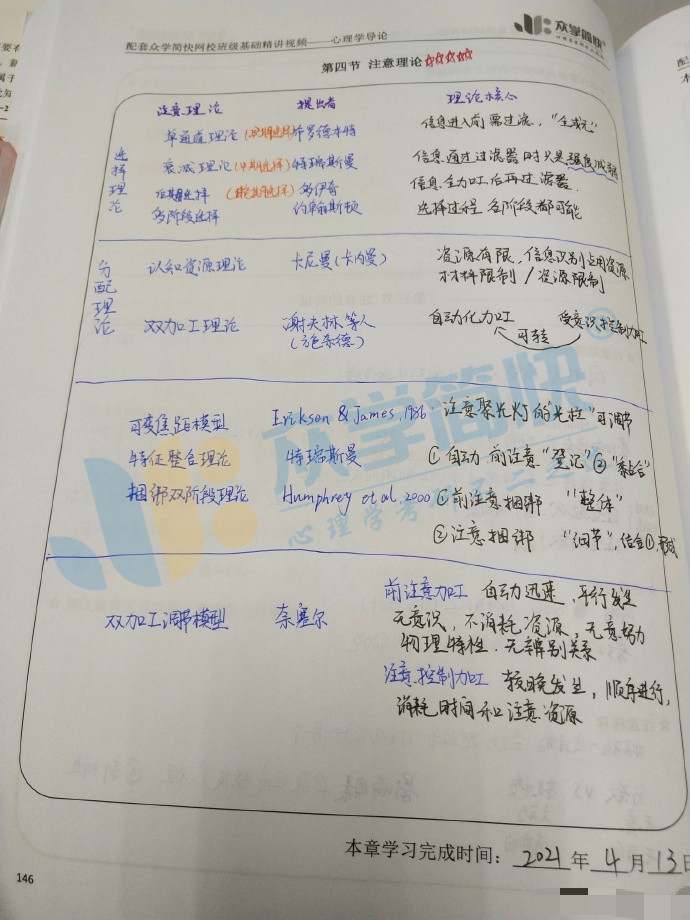 众学简快
配套众学简快网校班级基础精讲视频——心理学导论
第四节 注意理论☆☆☆☆☆
注意理论 提出者 理论核心
选择理论
单通道理论(早期选择) 布罗德本特 信息进入前需过滤，"全或无"
衰减理论(中期选择) 特瑞斯曼 信息通过过滤器时只是强度减弱
后期选择(晚期选择) 多伊奇 信息全加工后再过滤器.
多阶段选择 约翰斯顿 选择过程 各阶段都可能
分配理论
认知资源理论 卡尼曼(卡内曼) 资源有限，信息识别占用资源
材料限制/资源限制
双加工理论 谢夫林等人 自动化加工 受意识控制加工
(施奈德) 可转
众学简快
心理学考
可变焦距模型 Erikson & James, 1986 注意聚光灯的"光柱"可调节
特征整合理论 特瑞斯曼 ①自动 前注意"登记"②"黏合"
捆绑双阶段理论 Humphrey et al, 2000 ①前注意捆绑 "整体"
②注意捆绑 "细节"，结合①，形成
双加工调节模型 奈塞尔 前注意加工 自动迅速，平行发生
无意识，不消耗资源，无意努力
物理特性．无辨别关系
注意控制加工 较晚发生，顺序进行，
消耗时间和注意资源
本章学习完成时间：2021年4月13日
146